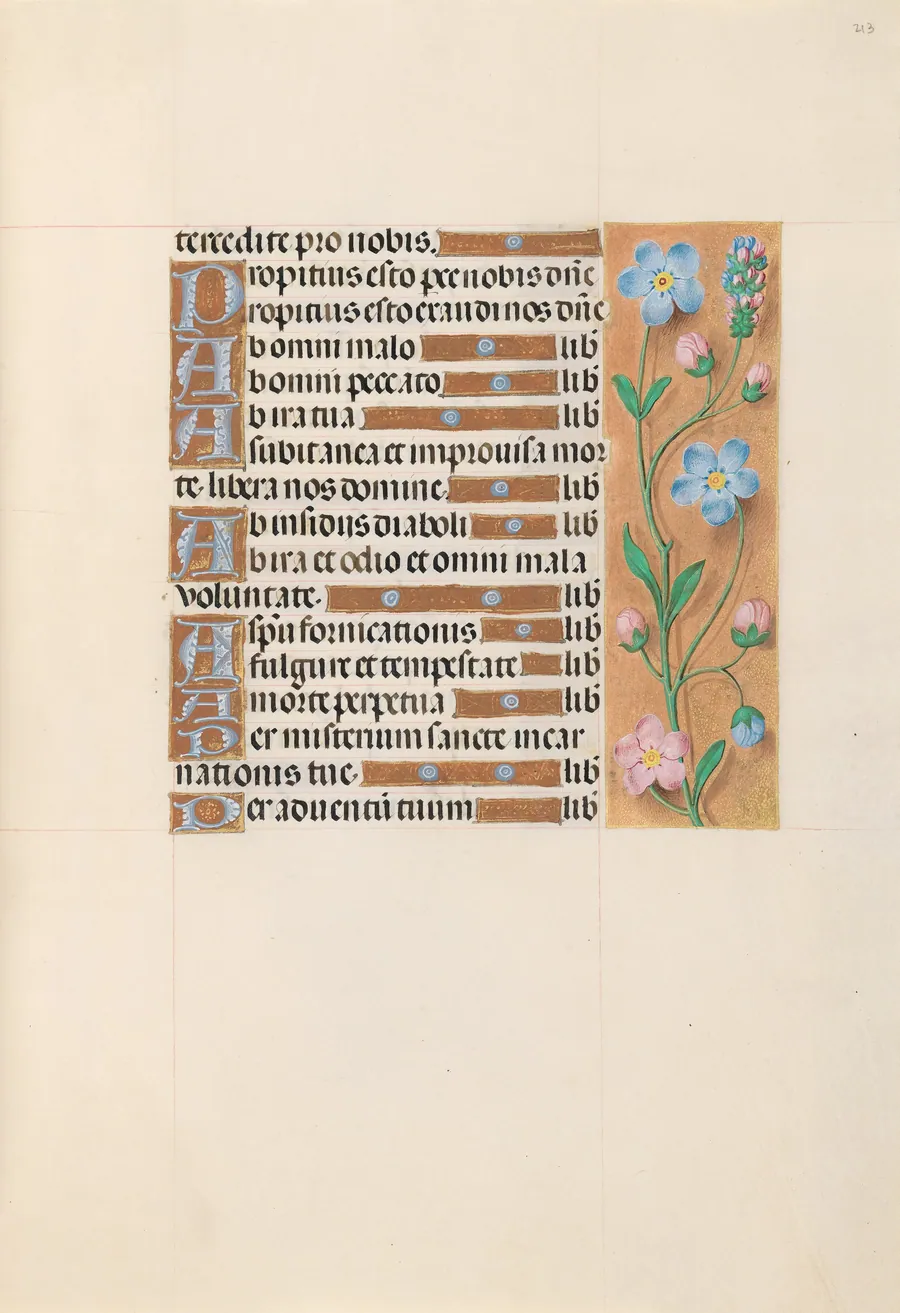 213
tercedite pro nobis.
Propitius esto parce nobis dñe
Propitius esto exaudi nos dñe
Ab omni malo lib̃
Ab omni peccato lib̃
Ab ira tua lib̃
A subitanea et improuisa mor
te. libera nos domine. lib̃
Ab insidijs diaboli lib̃
Ab ira et odio et omni mala
voluntate. lib̃
A spũ fornicationis. lib̃
A fulgure et tempestate lib̃
A morte perpetua lib̃
Per misterium sancte incar
nationis tue. lib̃
Per aduentũ tuum lib̃